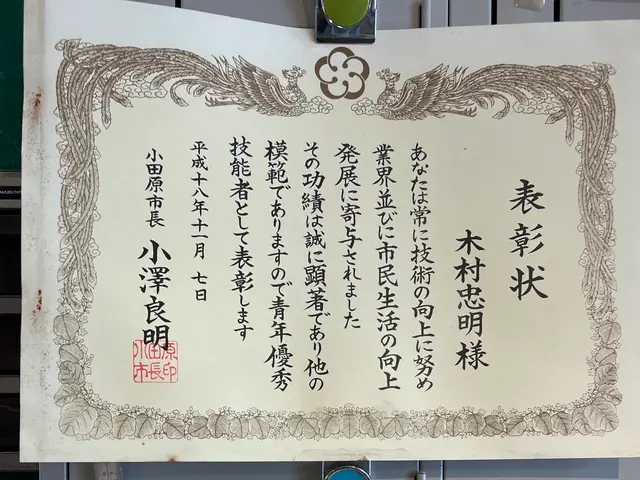 表彰状
木村忠明様
あなたは常に技術の向上に努め
業界並びに市民生活の向上
発展に寄与されました
その功績は誠に顕著であり他の
模範でありますので青年優秀
技能者として表彰します
平成十八年十一月 七日
小田原市長 小澤良明
小田原市長印